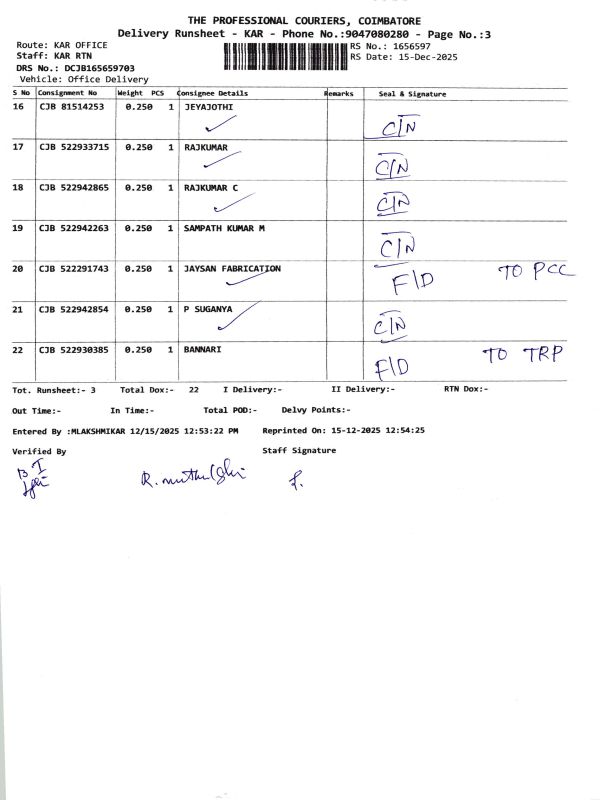 THE PROFESSIONAL COURIERS, COIMBATORE
Delivery Runsheet - KAR - Phone No.:9047080280 - Page No.:3
Route: KAR OFFICE RS No.: 1656597
Staff: KAR RTN RS Date: 15-Dec-2025
DRS No.: DCJB165659703
Vehicle: Office Delivery
S No Consignment No Weight PCS Consignee Details Remarks Seal & Signature
16 CJB 81514253 0.250 1 JEYAJOTHI C/N
17 CJB 522933715 0.250 1 RAJKUMAR C/N
18 CJB 522942865 0.250 1 RAJKUMAR C C/N
19 CJB 522942263 0.250 1 SAMPATH KUMAR M C/N
20 CJB 522291743 0.250 1 JAYSAN FABRICATION F/D TO PCC
21 CJB 522942854 0.250 1 P SUGANYA C/N
22 CJB 522930385 0.250 1 BANNARI F/D TO TRP
Tot. Runsheet:- 3 Total Dox:- 22 I Delivery:- II Delivery:- RTN Dox:-
Out Time:- In Time:- Total POD:- Delvy Points:-
Entered By :MLAKSHMIKAR 12/15/2025 12:53:22 PM Reprinted On: 15-12-2025 12:54:25
Verified By Staff Signature